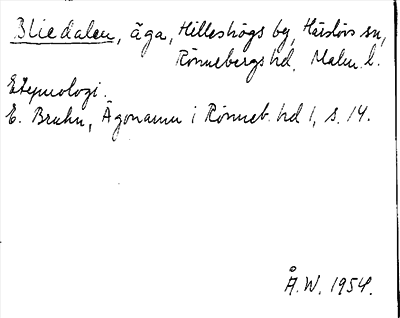 Bliedalen, äga, Hilleshögs by, Härslövs sn,
Rönnebergs hd. Malm. l.
Etymologi.
E. Bruhn, Ägonamn i Rönneb. hd 1, s. 14.
Å.W. 1954.